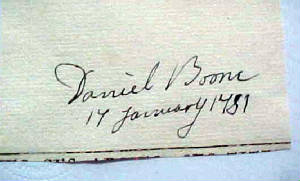 Daniel Boone
17 January 1781